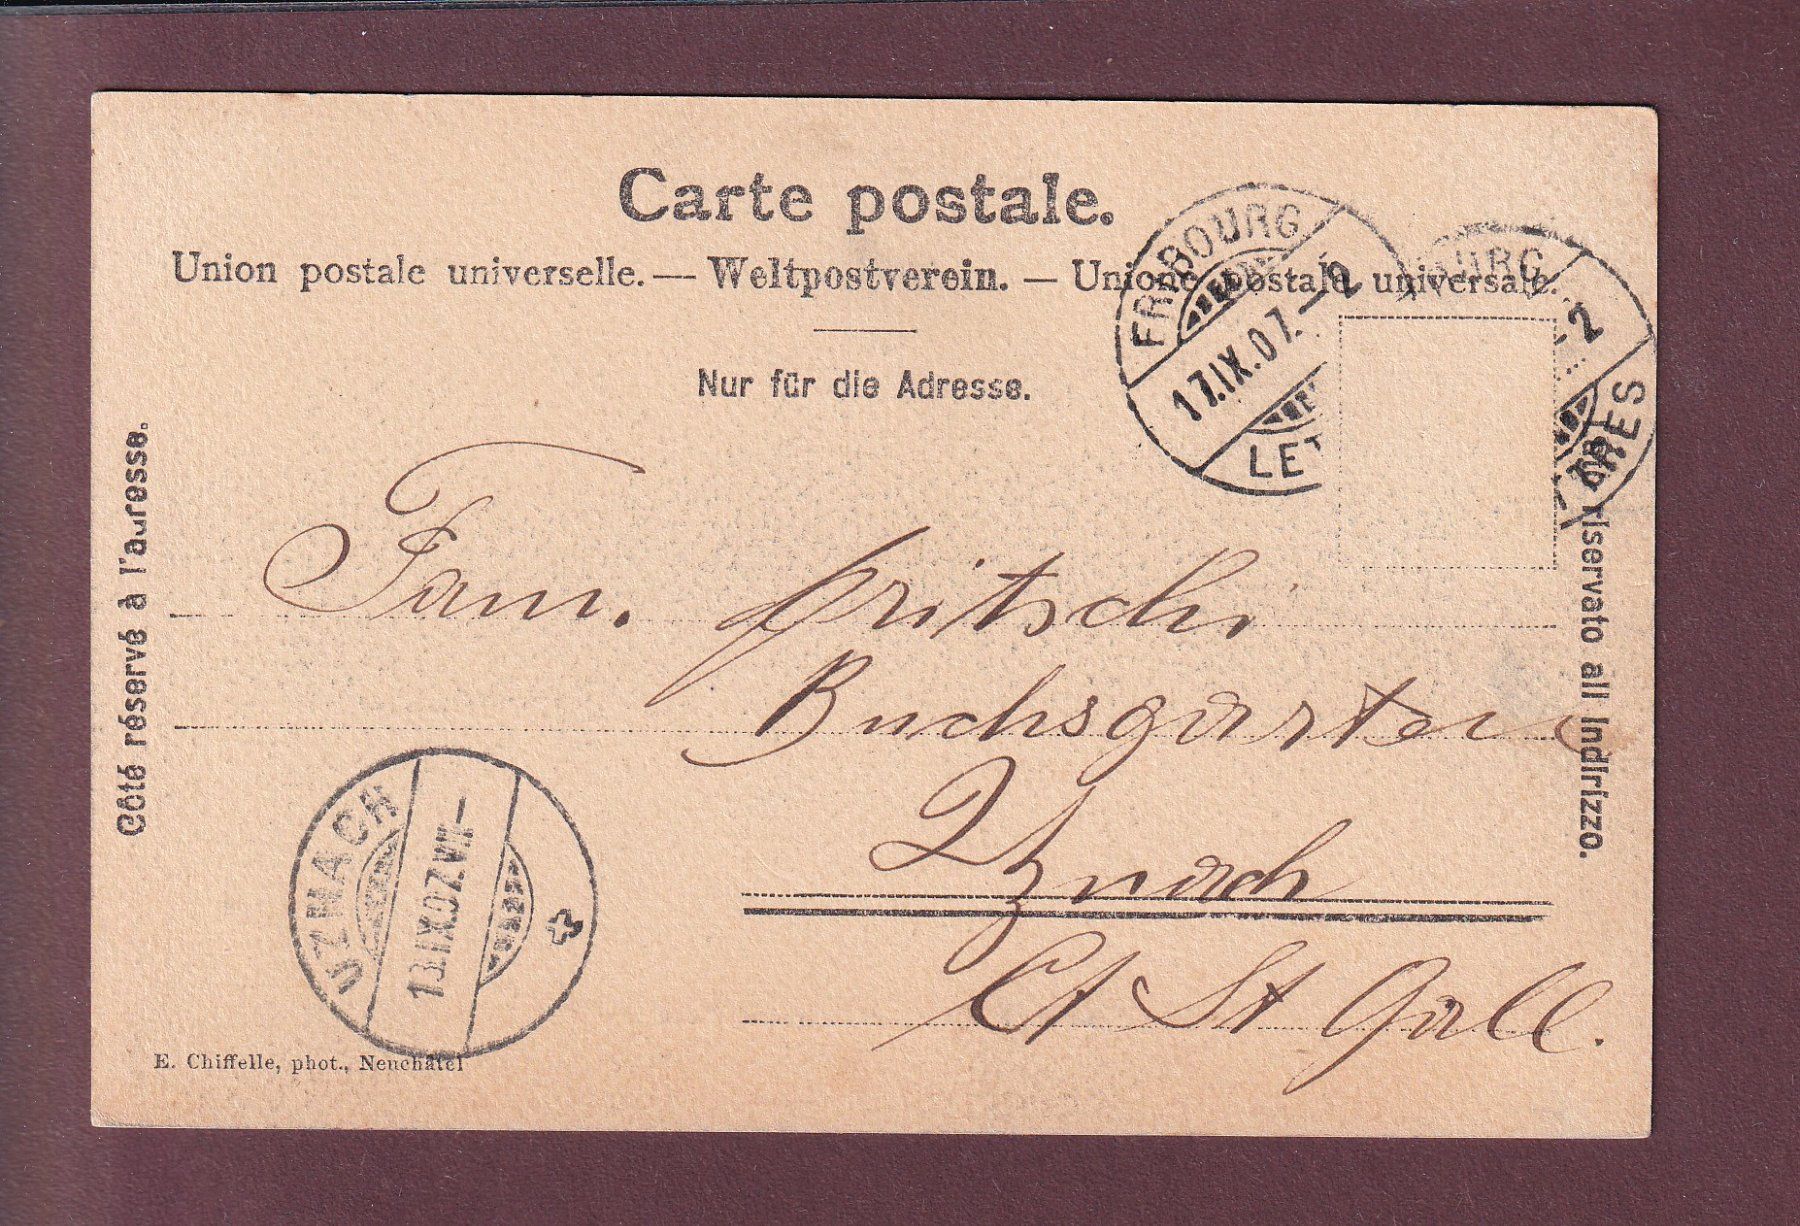 Carte postale.
Union postale universelle. — Weltpostverein. — Unione postale universale.
Nur für die Adresse.
Côté réservé à l'adresse.
riservato all Indirizzo.
FRIBOURG
17.IX.07.—2
LET
BOURG
2
RES
Fam. Fritschi
Buchsgarten
Uznach
Ct St Gall.
UZNACH
18.IX.07.VII.—
E. Chiffelle, phot., Neuchâtel